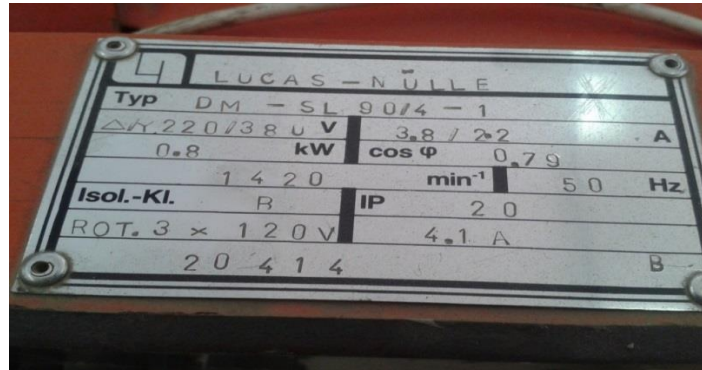 LUCAS-NÜLLE
Typ DM - SL 90/4-1
Δ/Y 220/380 V 3.8/2.2 A
0.8 kW cos φ 0.79
1420 min⁻¹ 50 Hz
Isol.-Kl. B IP 20
ROT. 3 × 120V 4.1 A
20414 B